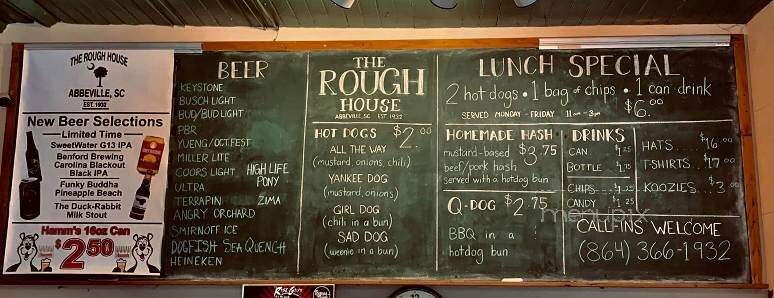 THE ROUGH HOUSE
ABBEVILLE, SC
EST. 1932
New Beer Selections
Limited Time
SweetWater G13 IPA
Benford Brewing
Carolina Blackout
Black IPA
Funky Buddha
Pineapple Beach
The Duck-Rabbit
Milk Stout
Hamm's 16oz Can
$2.50
BEER
KEYSTONE
BUSCH LIGHT
BUD/BUD LIGHT
PBR
YUENG/OCT.FEST
MILLER LITE
COORS LIGHT
ULTRA
TERRAPIN
ANGRY ORCHARD
SMIRNOFF ICE
DOGFISH SEA QUENCH
HEINEKEN
HIGH LIFE
PONY
ZIMA
THE
ROUGH
HOUSE
ABBEVILLE, SC EST 1932
HOT DOGS $2.00
ALL THE WAY
(mustard, onions, chili)
YANKEE DOG
(mustard, onions)
GIRL DOG
(chili in a bun)
SAD DOG
(weenie in a bun)
LUNCH SPECIAL
2 hot dogs • 1 bag of chips • 1 can drink
$6.00
SERVED MONDAY - FRIDAY 11am-3pm
HOMEMADE HASH
mustard-based $3.75
beef/pork hash
served with a hotdog bun
Q-DOG $2.75
BBQ in a
hotdog bun
DRINKS
CAN
BOTTLE
CHIPS
CANDY
HATS $16.00
T-SHIRTS $17.00
KOOZIES $3.00
CALL-INS WELCOME
(864) 366-1932
menupix